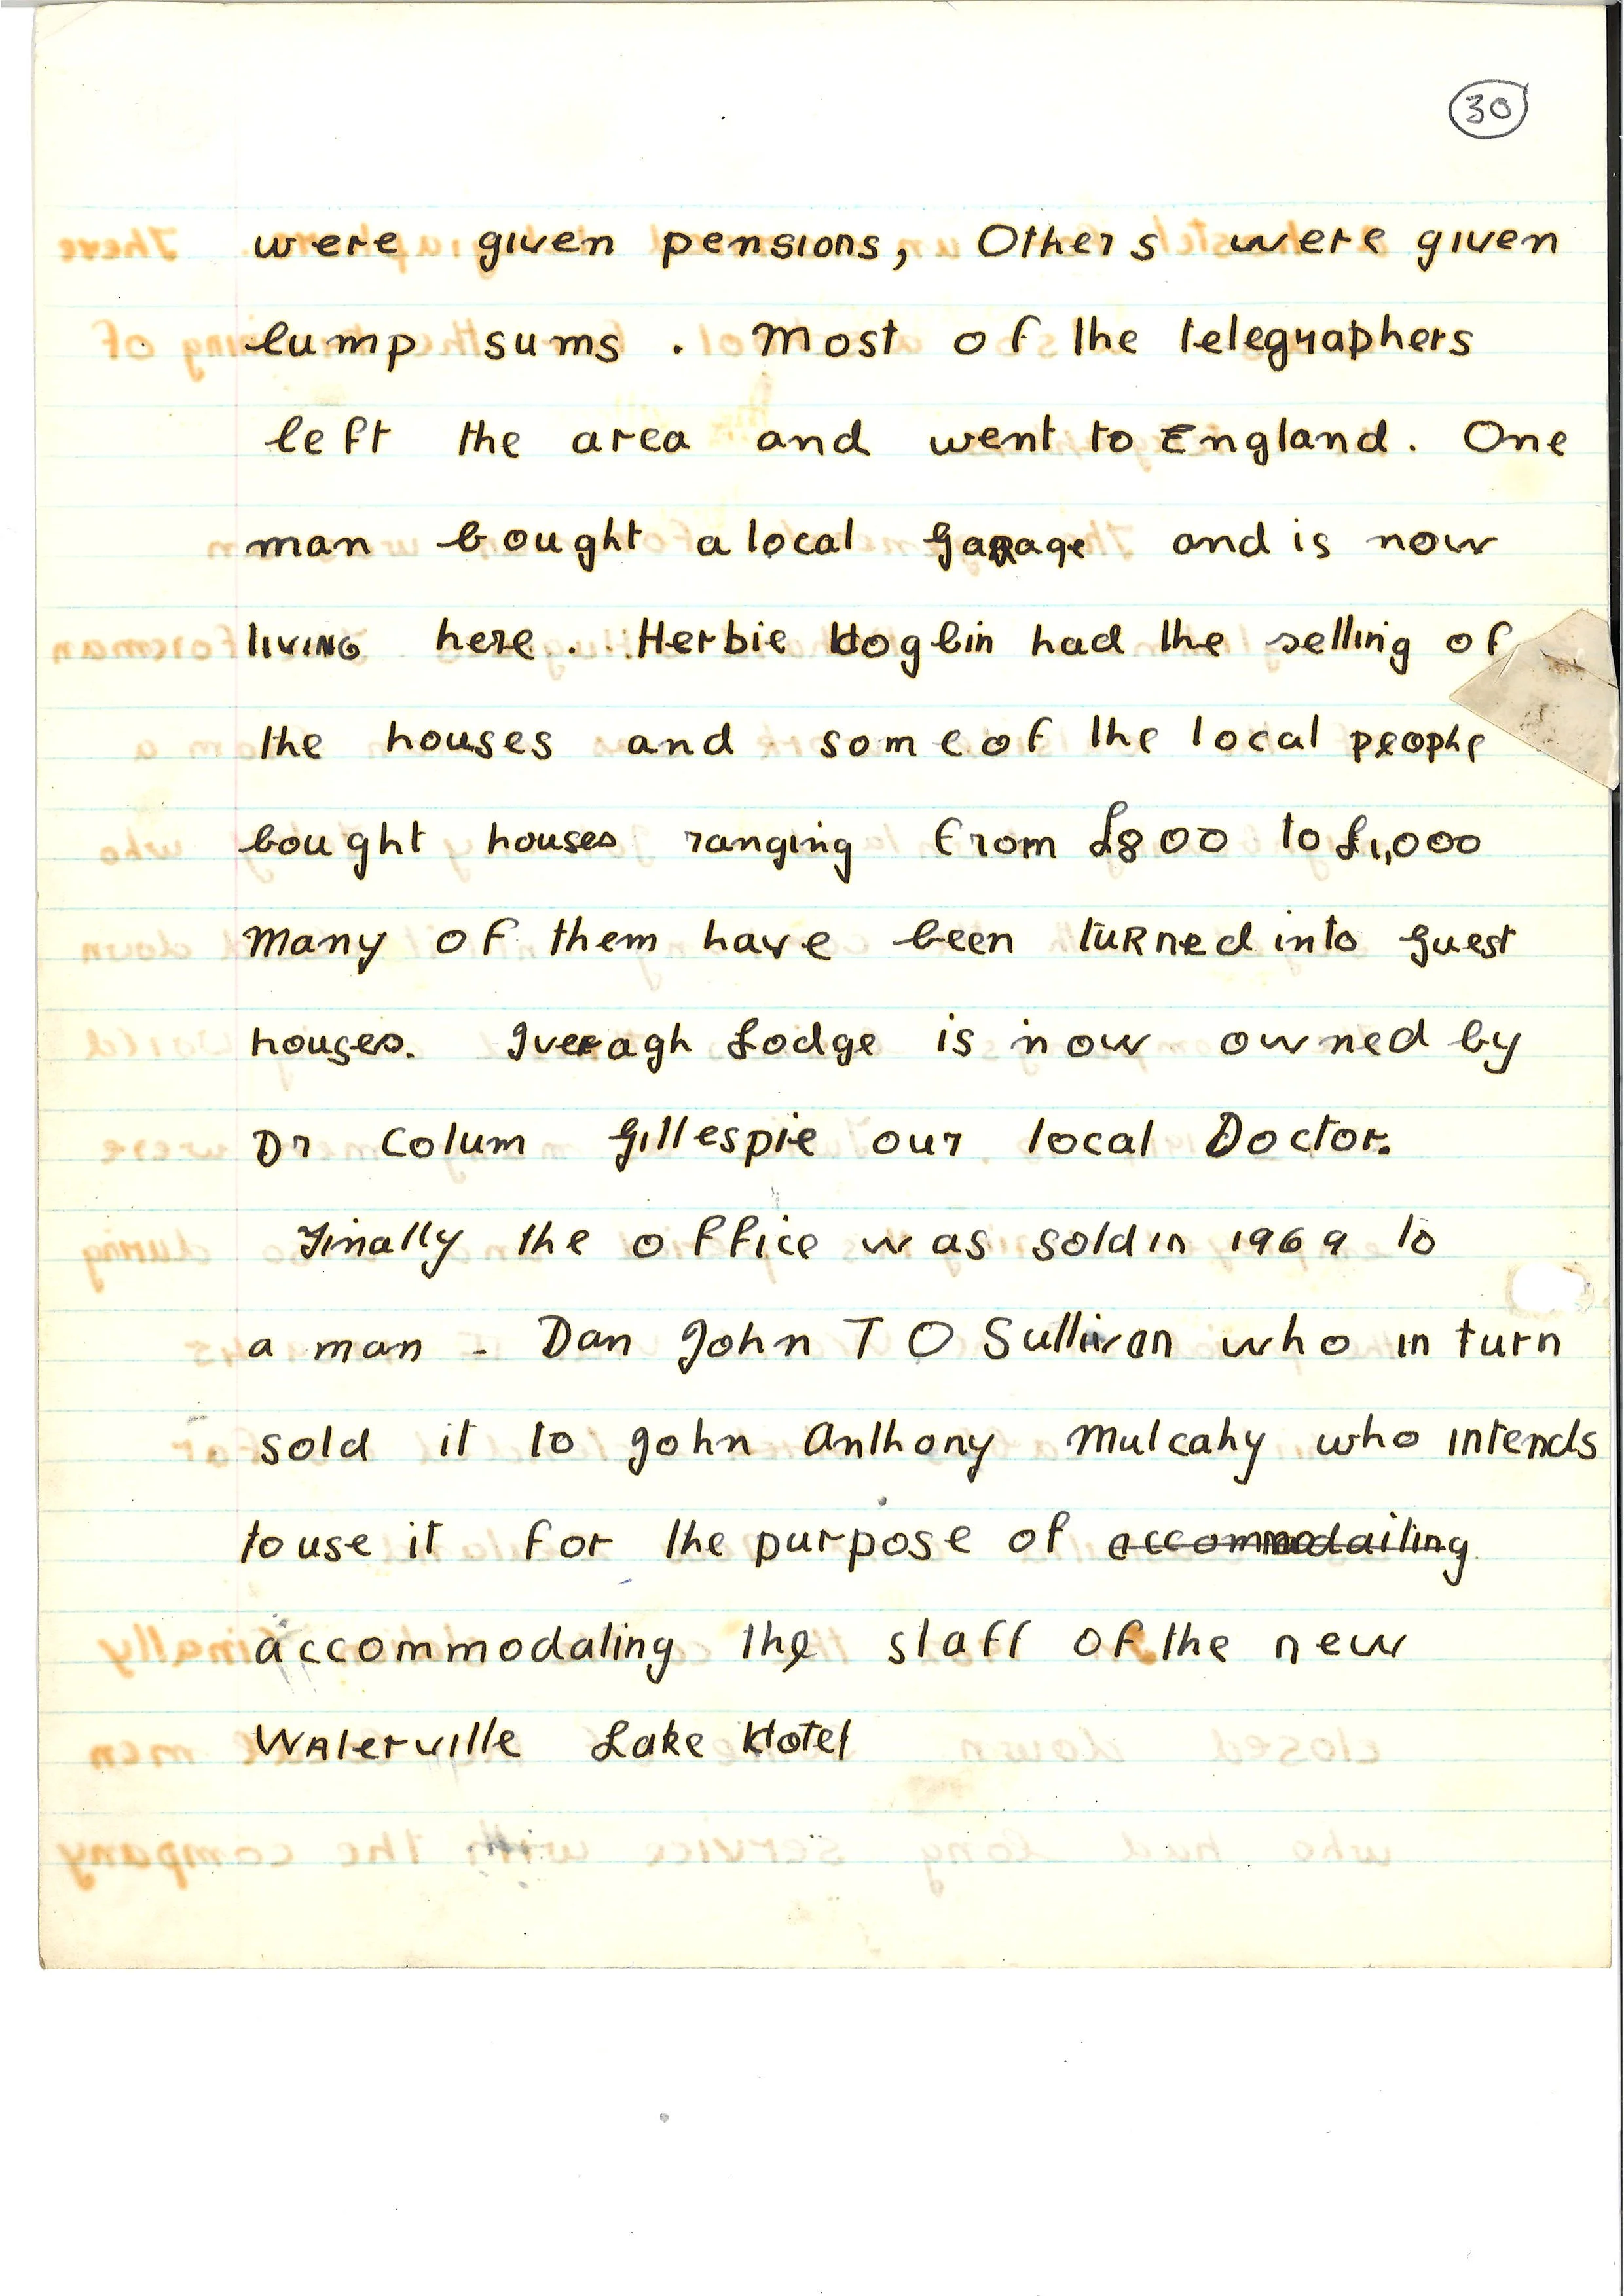 30
were given pensions, Others were given
lump sums . Most of the telegraphers
left the area and went to England. One
man bought a local Garage and is now
living here . Herbie Hoglin had the selling of
the houses and some of the local people
bought houses ranging from £800 to £1,000
Many of them have been turned into guest
houses. Iveragh Lodge is now owned by
Dr Colum Gillespie our local Doctor.
Finally the office was sold in 1969 to
a man - Dan John T O Sullivan who in turn
sold it to John Anthony Mulcahy who intends
to use it for the purpose of accommodaiting
accommodating the staff of the new
Waterville Lake Hotel